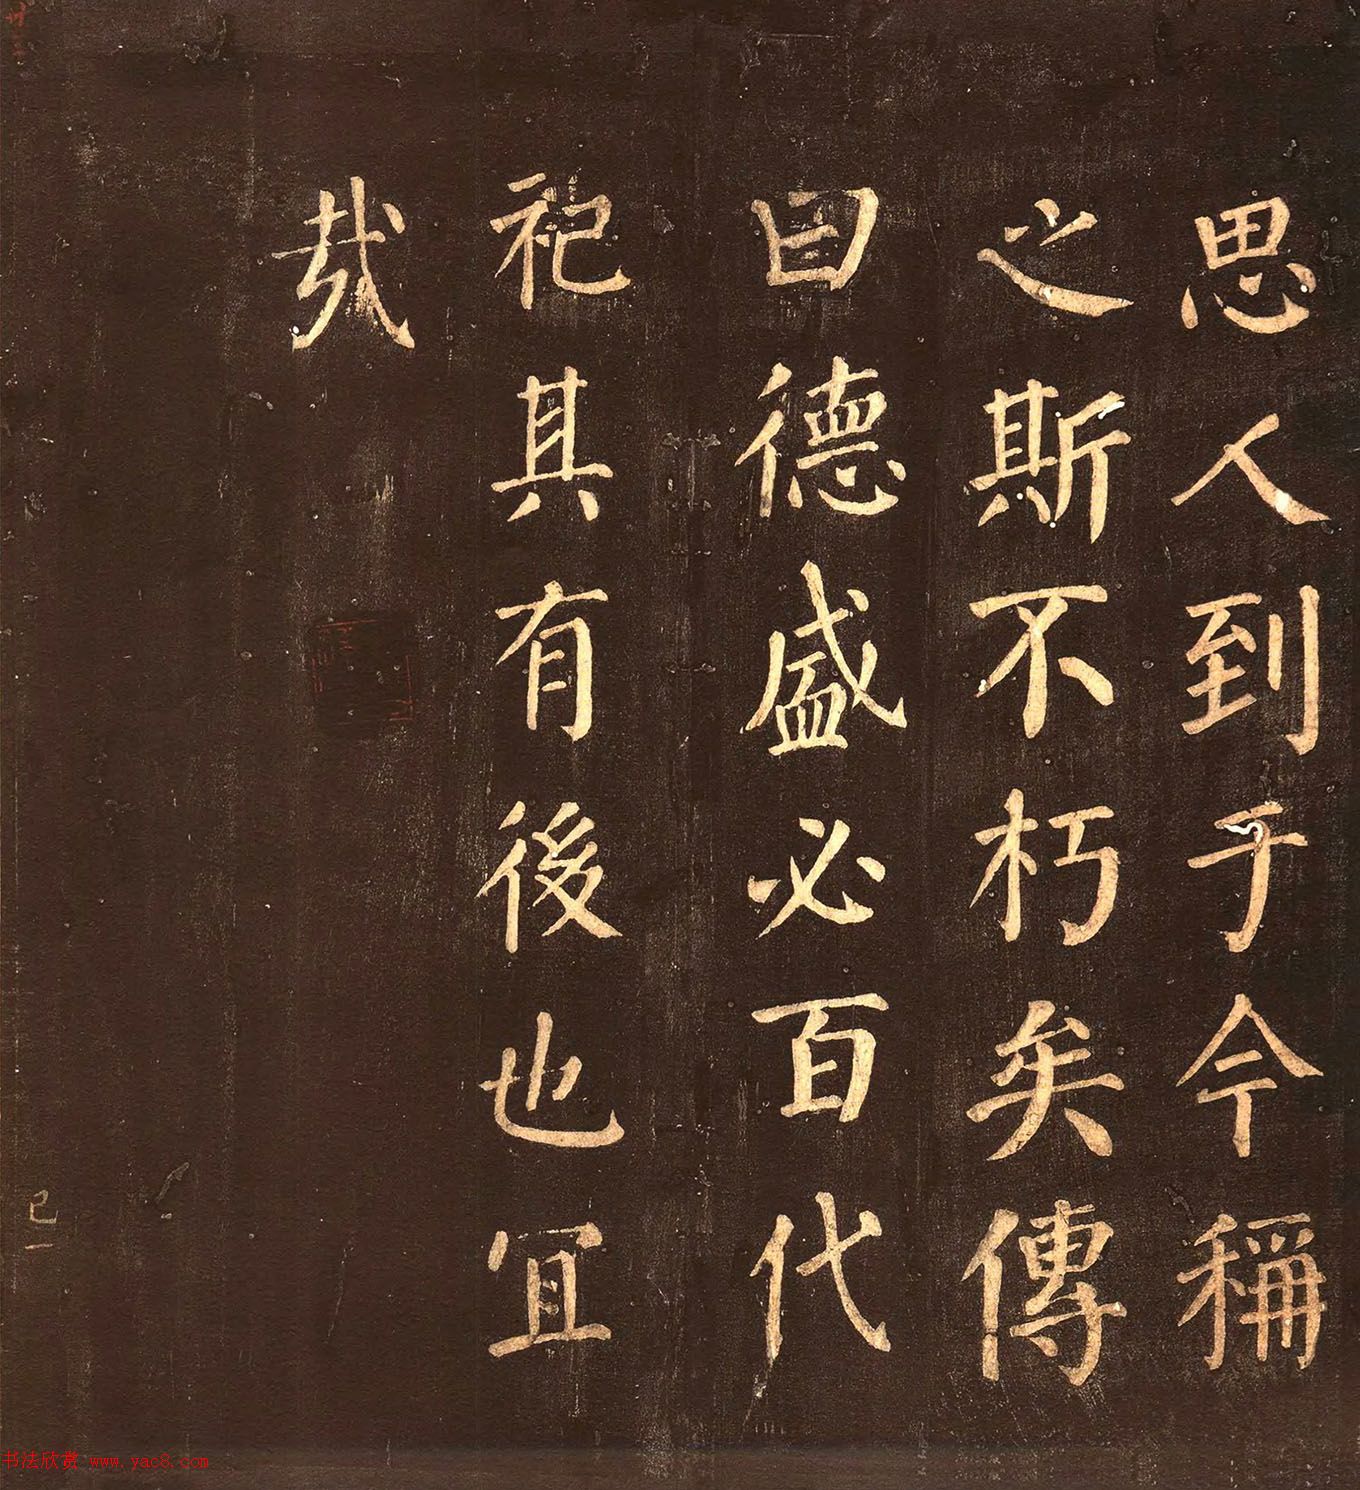 思人到于今稱
之斯不朽矣傳
曰德盛必百代
祀其有後也冝
哉
已一
书法欣赏 www.yac8.com